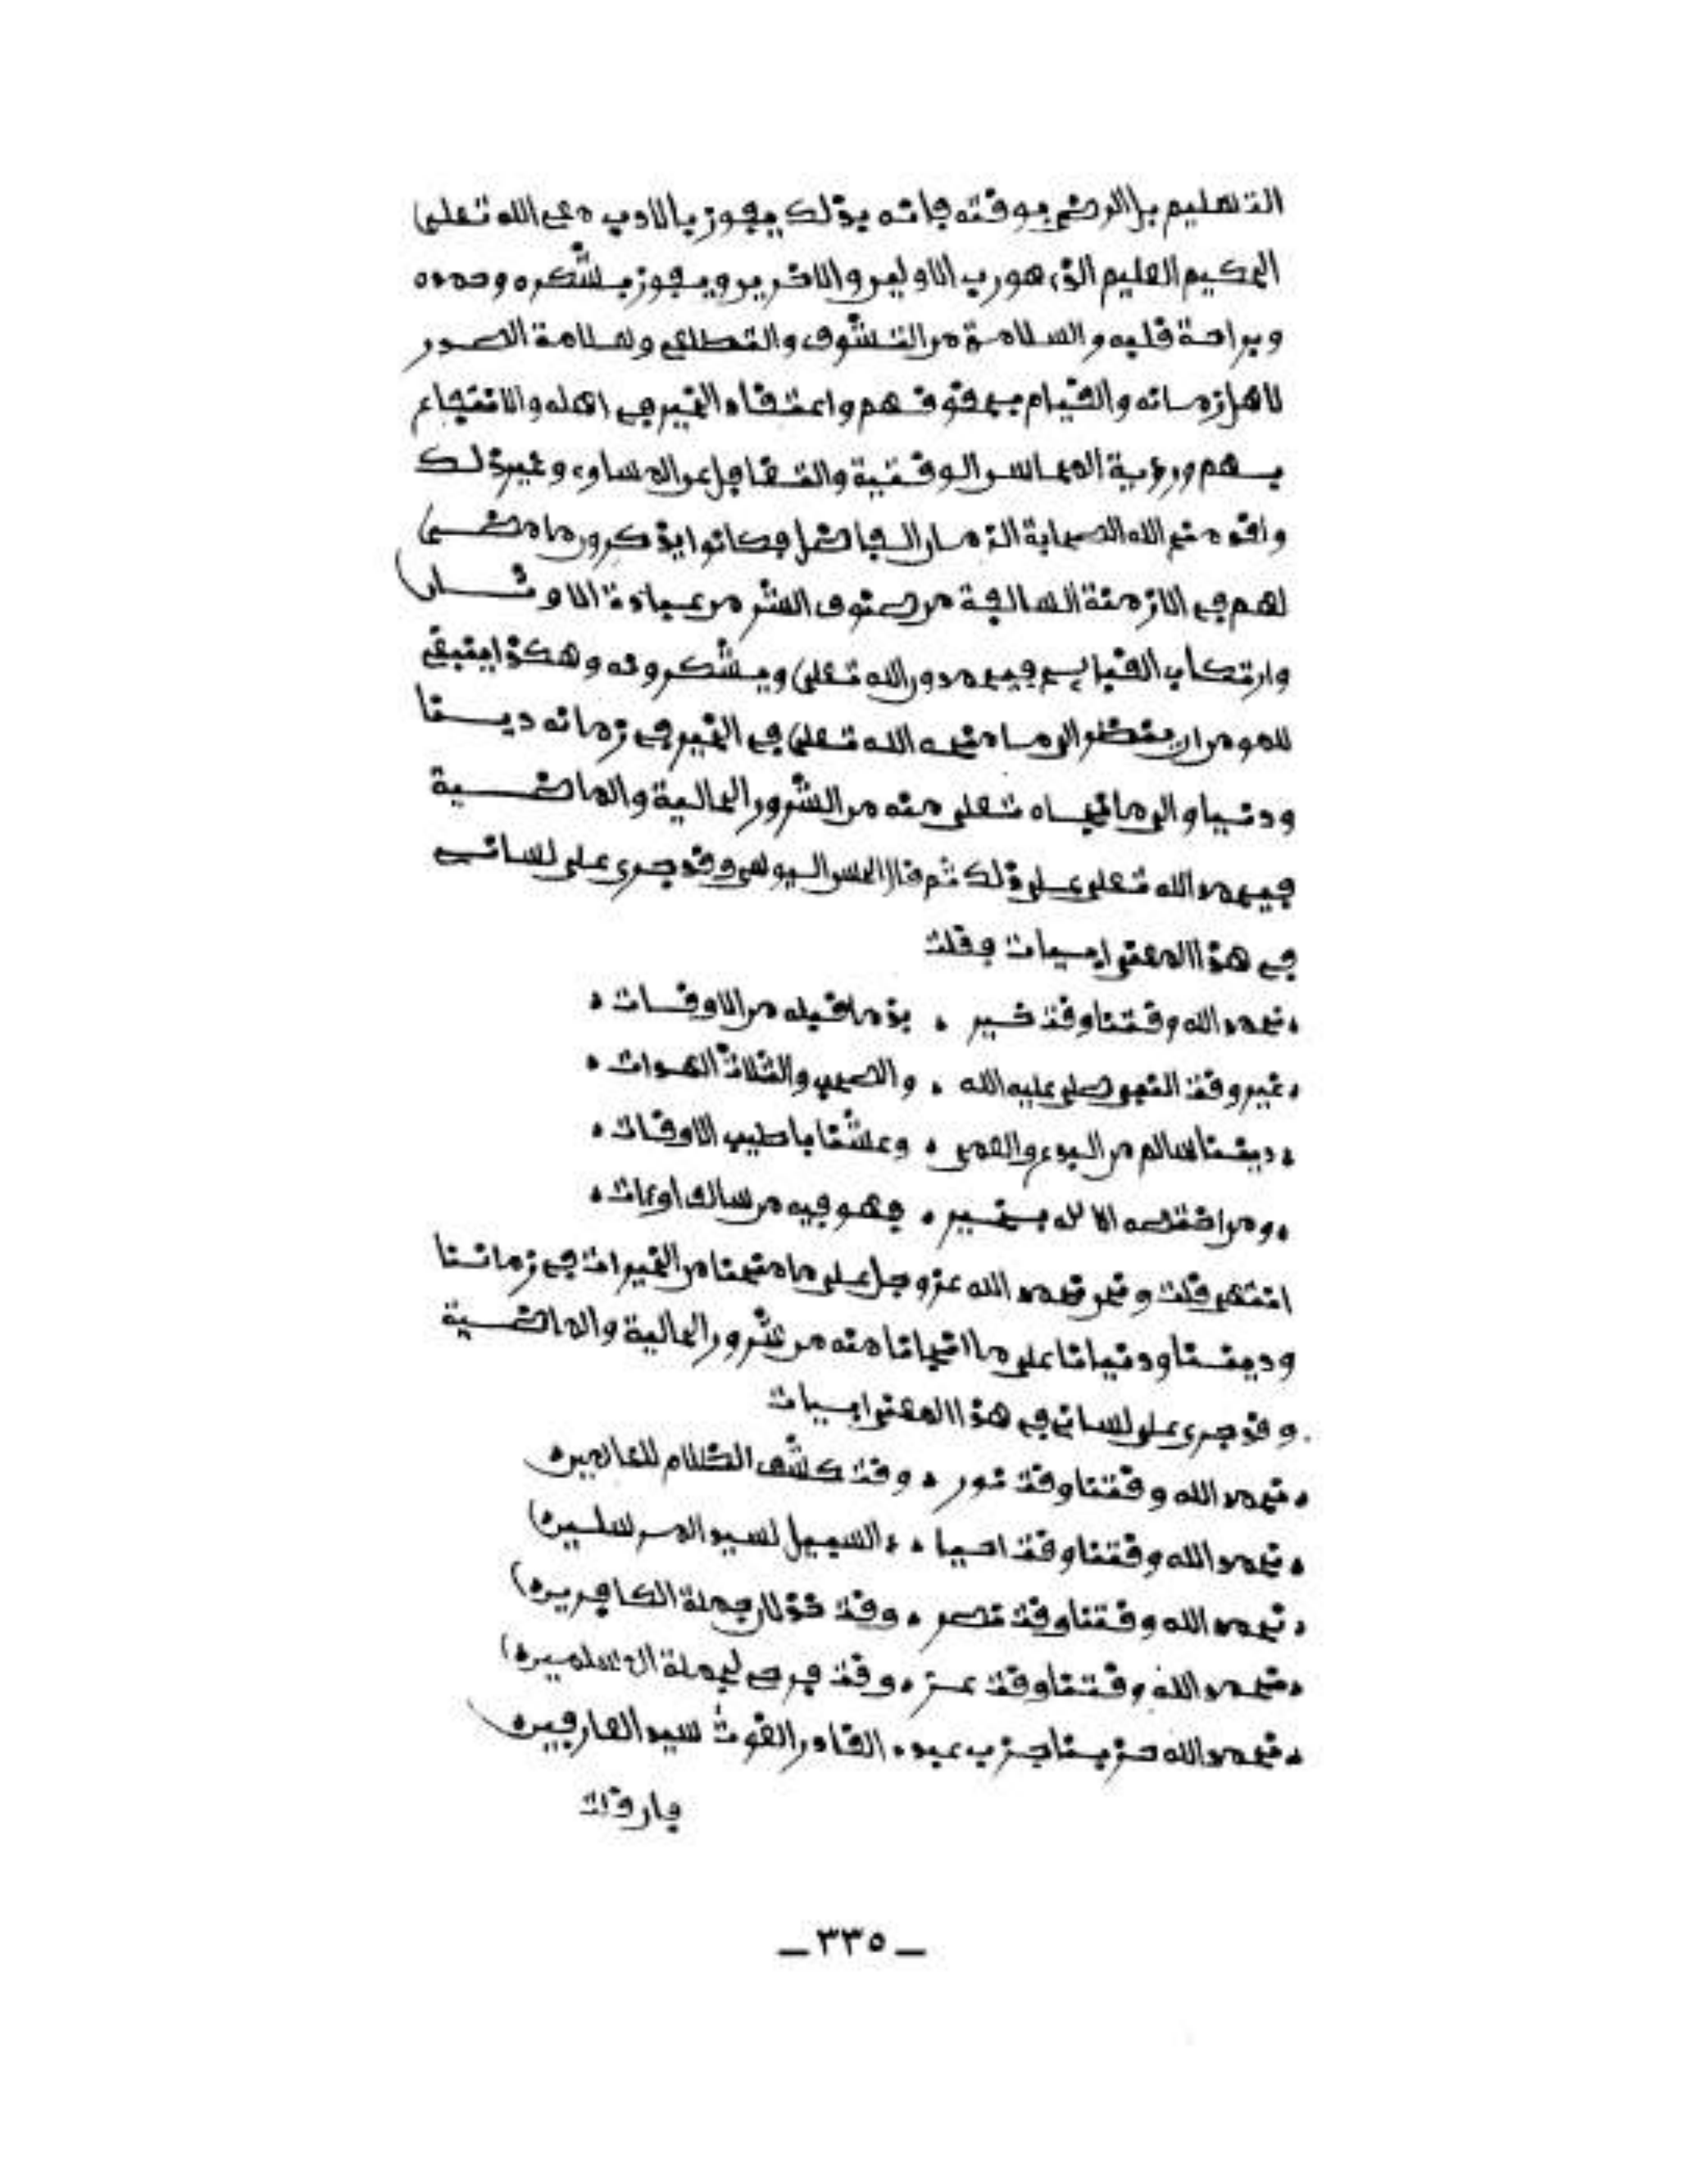 التسليم بل الرضى بوقته فانه بذلك يفوز بالادب مع الله تعلى
الحكيم العليم الذى هو رب الاولين والاخرين ويفوز بشكره وحمده
وبراحة قلبه والسلامة من التشوف والتطلع وسلامة الصدر
لاهل زمانه والقيام بحقوقهم واعتقاد الخير في اهله والانتفاع
بهم ورءية المحاسن الوقتية والتغافل عن المساوى وغير ذلك
وقد منح الله الصحابة الزمان الفاضل فكانوا يذكرون ما مضى
لهم في الازمنة السالفة من صنوف الشر من عبادة الاوثان
وارتكاب القبايح فيحمدون الله تعلى ويشكرونه وهكذا ينبغى
للمومن ان ينظر الى ما منحه الله تعلى في الخير في زمانه دينا
ودنيا والى ما نجاه تعلى منه من الشرور الحالية والماضية
فيحمد الله تعلى على ذلك ثم قال الحسن اليوسى وقد جرى على لسانى
في هذا المعنى ابيات فقلت
نحمد الله وقتنا وقت خير بذ ما قبله من الاوقات
غير وقت النبى صلى عليه الله والصحب والثلاث الهدات
ديننا سالم من البدع والعمى وعشنا باطيب الاوقات
ومن اختصه الاله بخير فهو فيه من سالف او ءات
انتهى قلت ونحن نحمد الله عز وجل على ما منحنا من الخيرات في زماننا
وديننا ودنيانا على ما انجانا منه من شرور الحالية والماضية
وقد جرى على لسانى في هذا المعنى ابيات
نحمد الله وقتنا وقت نور وقت كشف الظلام للعالمين
نحمد الله وقتنا وقت احيا ء السبيل لسيد المرسلين
نحمد الله وقتنا وقت نصر وقت خذلان جملة الكافرين
نحمد الله وقتنا وقت عز وقت فرح لجملة المسلمين
نحمد الله حزبنا حزب عبد القادر الغوث سيد العارفين
فان قلت
ـ ٣٣٥ ـ